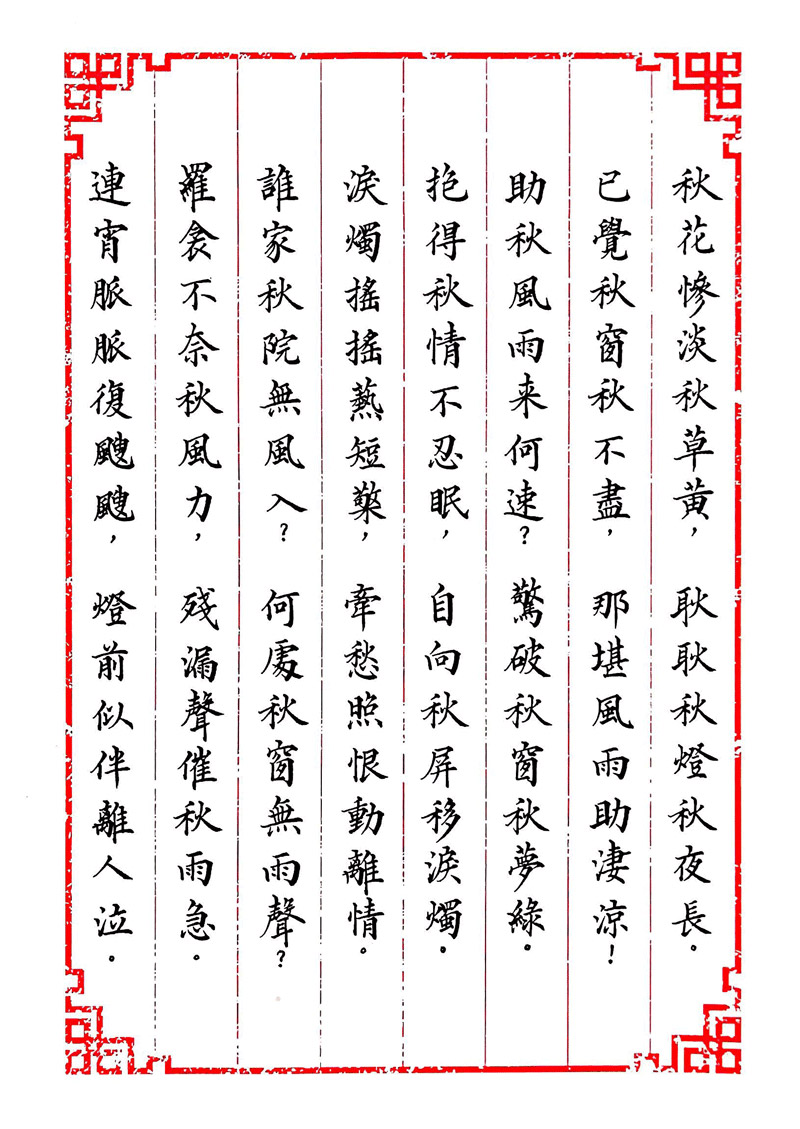 秋花慘淡秋草黃，耿耿秋燈秋夜長。
已覺秋窗秋不盡，那堪風雨助淒涼！
助秋風雨来何速？驚破秋窗秋夢綠。
抱得秋情不忍眠，自向秋屏移淚燭。
淚燭搖搖爇短檠，牽愁照恨動離情。
誰家秋院無風入？何處秋窗無雨聲？
羅衾不奈秋風力，殘漏聲催秋雨急。
連宵脈脈復颼颼，燈前似伴離人泣。